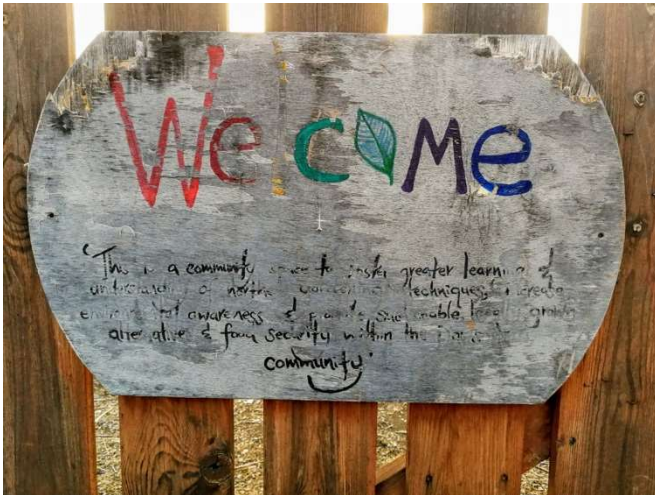 Welcome
"This is a community space to foster greater learning &
understanding of gardening techniques, create
environmental awareness & sustainable locally grown
alternative & food security within the
community"